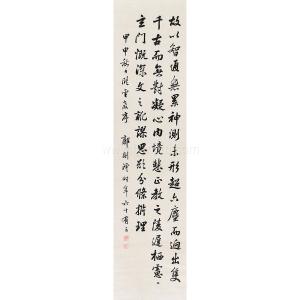 故以智通無累神測未形超六塵而迥出隻
千古而無對凝心內境悲正教之陵遲栖慮
玄門慨深文之訛謬思欲分條析理
甲申秋
時年六十有